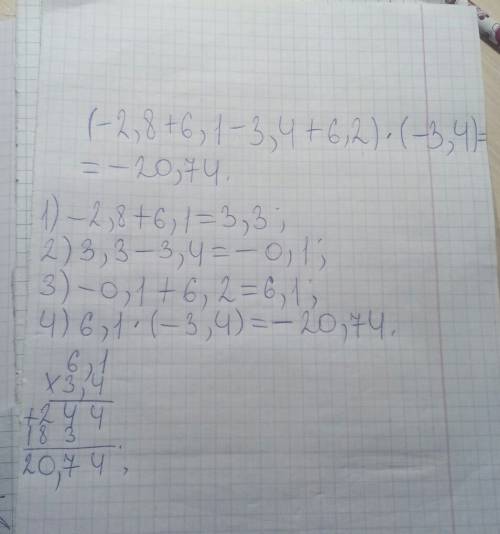 (-2,8+6,1-3,4+6,2)·(-3,4)=
=-20,74.
1) -2,8+6,1=3,3;
2) 3,3-3,4=-0,1;
3) -0,1+6,2=6,1;
4) 6,1·(-3,4)=-20,74.
6,1
×3,4
+244
183
20,74;